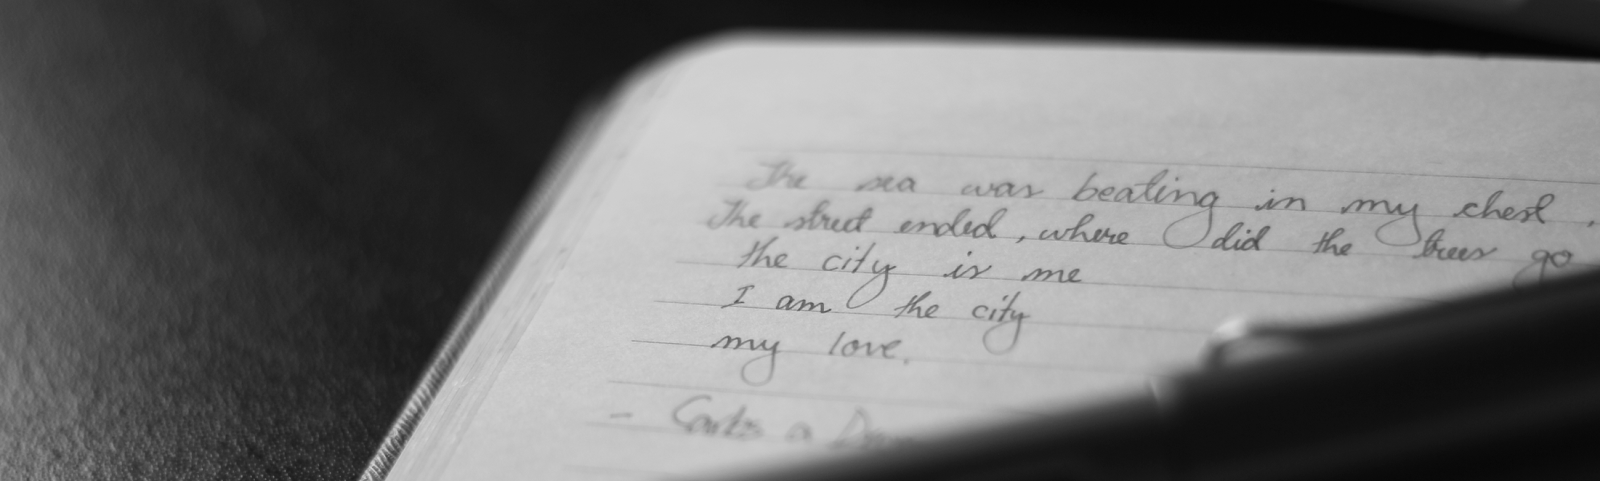 The sea was beating in my chest.
The street ended, where did the trees go
the city is me
I am the city
my love.
- a